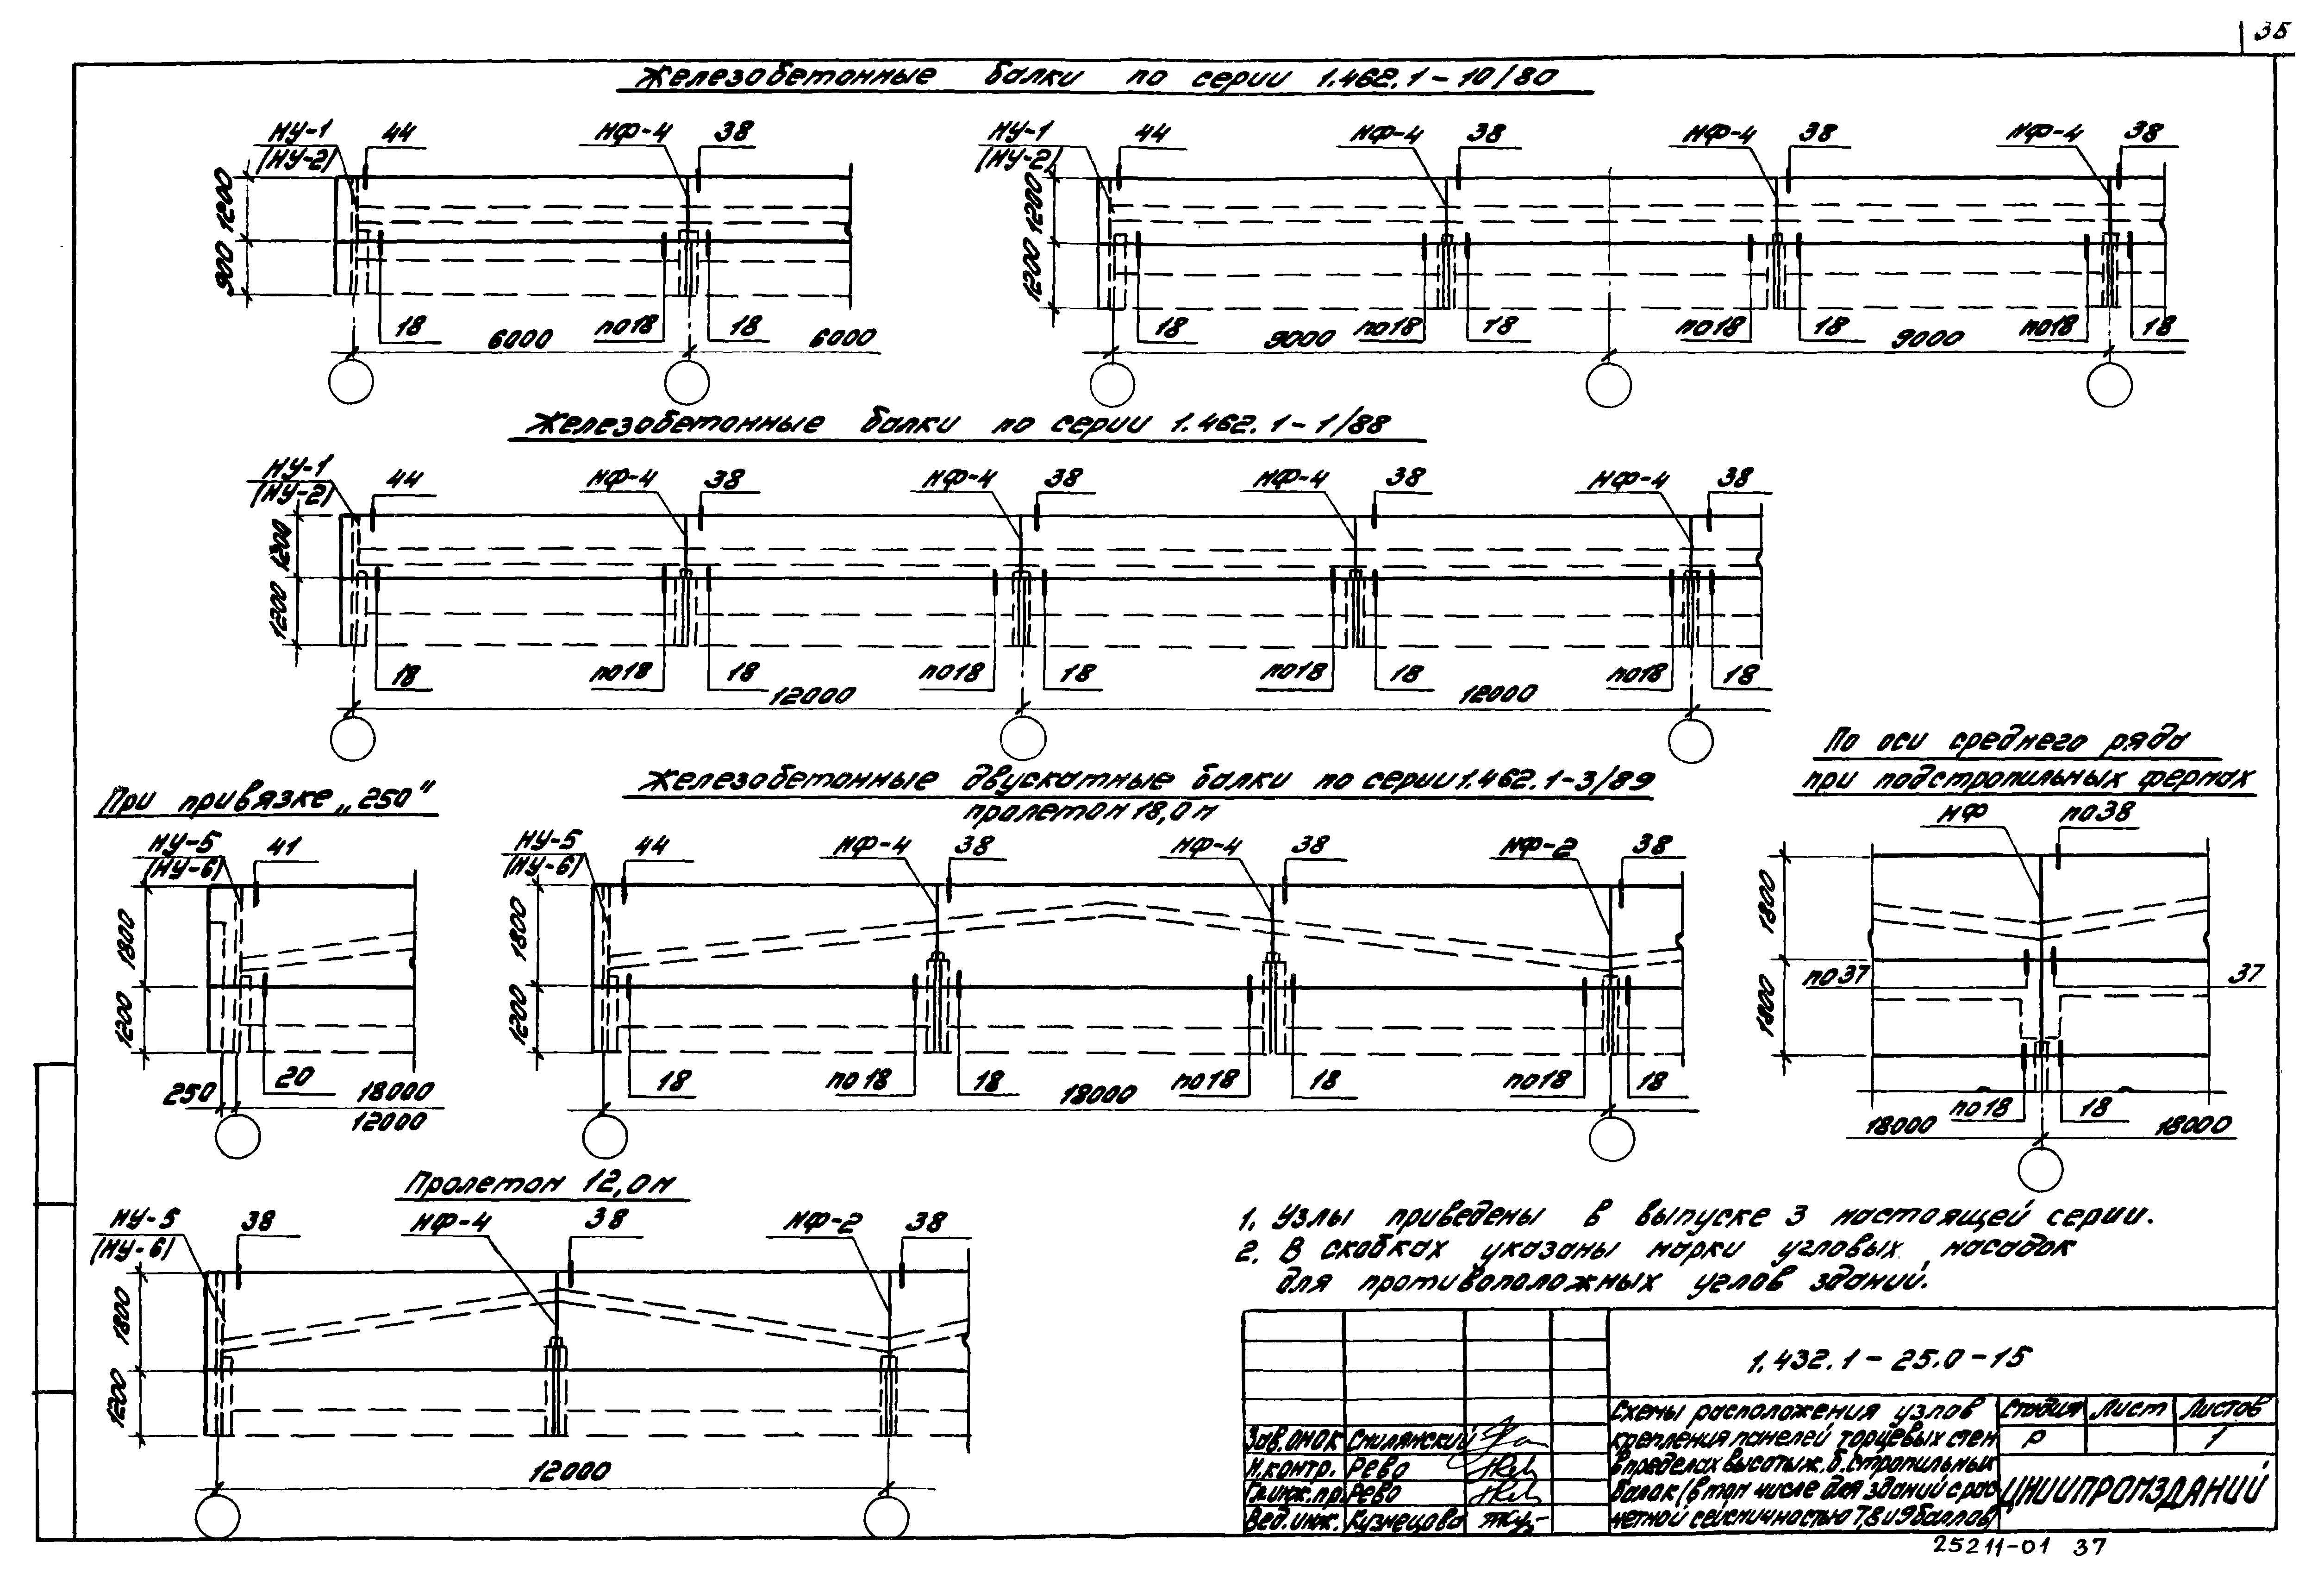 35
Железобетонные балки по серии 1.462.1-10/80
НУ-1 44 НФ-4 38
(НУ-2)
1200
900
18 по18 18
6000 6000
НУ-1 44 НФ-4 38 НФ-4 38 НФ-4 38
(НУ-2)
1200
1200
18 по18 18 по18 18 по18 18
9000 9000
Железобетонные балки по серии 1.462.1-1/88
НУ-1 44 НФ-4 38 НФ-4 38 НФ-4 38 НФ-4 38
(НУ-2)
1200
1200
18 по18 18 по18 18 по18 18 по18 18
12000 12000
При привязке „250"
НУ-5 41
(НУ-6)
1800
1200
20
250 18000
12000
Железобетонные двускатные балки по серии 1.462.1-3/89
пролетом 18,0м
НУ-5 44 НФ-4 38 НФ-4 38 НФ-2 38
(НУ-6)
1800
1200
18 по18 18 по18 18 по18 18
18000
По оси среднего ряда
при подстропильных фермах
НФ по38
1800
по37 37
1800
по18 18
18000 18000
Пролетом 12,0м
НУ-5 38 НФ-4 38 НФ-2 38
(НУ-6)
1800
1200
12000
1. Узлы приведены в выпуске 3 настоящей серии.
2. В скобках указаны марки угловых насадок
для противоположных углов зданий.
1.432.1-25.0-15
Схемы расположения узлов
крепления панелей торцевых стен
в пределах высоты ж.б. стропильных
балок (в том числе для зданий с рас
четной сейсмичностью 7,8 и 9 баллов)
Стадия Лист Листов
Р 1
ЦНИИПРОМЗДАНИЙ
Зав. ОМОК Смилянский
Н.контр. Рево
Гл.инж.пр. Рево
Вед.инж. Кузнецова
25211-01 37